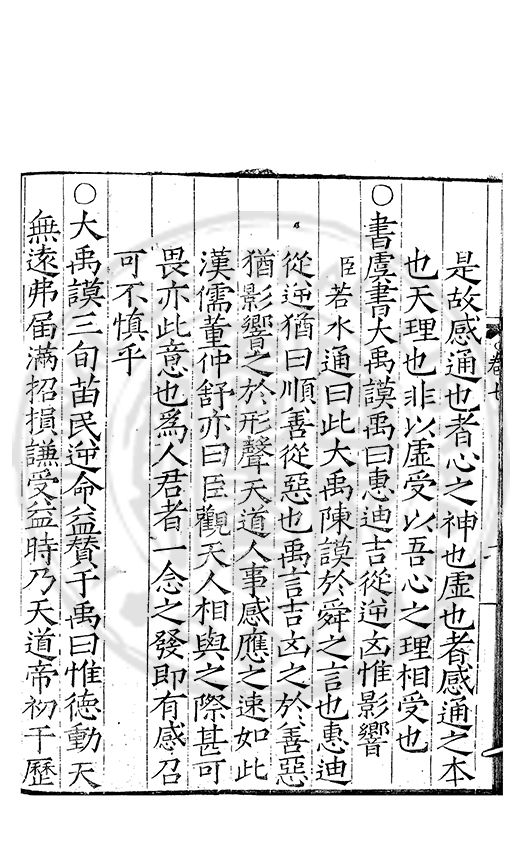 是故感通也者心之神也虛也者感通之本
也天理也非以虛受以吾心之理相受也
○書虞書大禹謨禹曰惠迪吉從逆凶惟影響
臣若水通曰此大禹陳謨於舜之言也惠迪
從逆猶曰順善從惡也禹言吉凶之於善惡
猶影響之於形聲天道人事感應之速如此
漢儒董仲舒亦曰臣觀天人相與之際甚可
畏亦此意也爲人君者一念之發即有感召
可不慎乎
○大禹謨三旬苗民逆命益贊于禹曰惟德動天
無遠弗届滿招損謙受益時乃天道帝初于歷
卷七